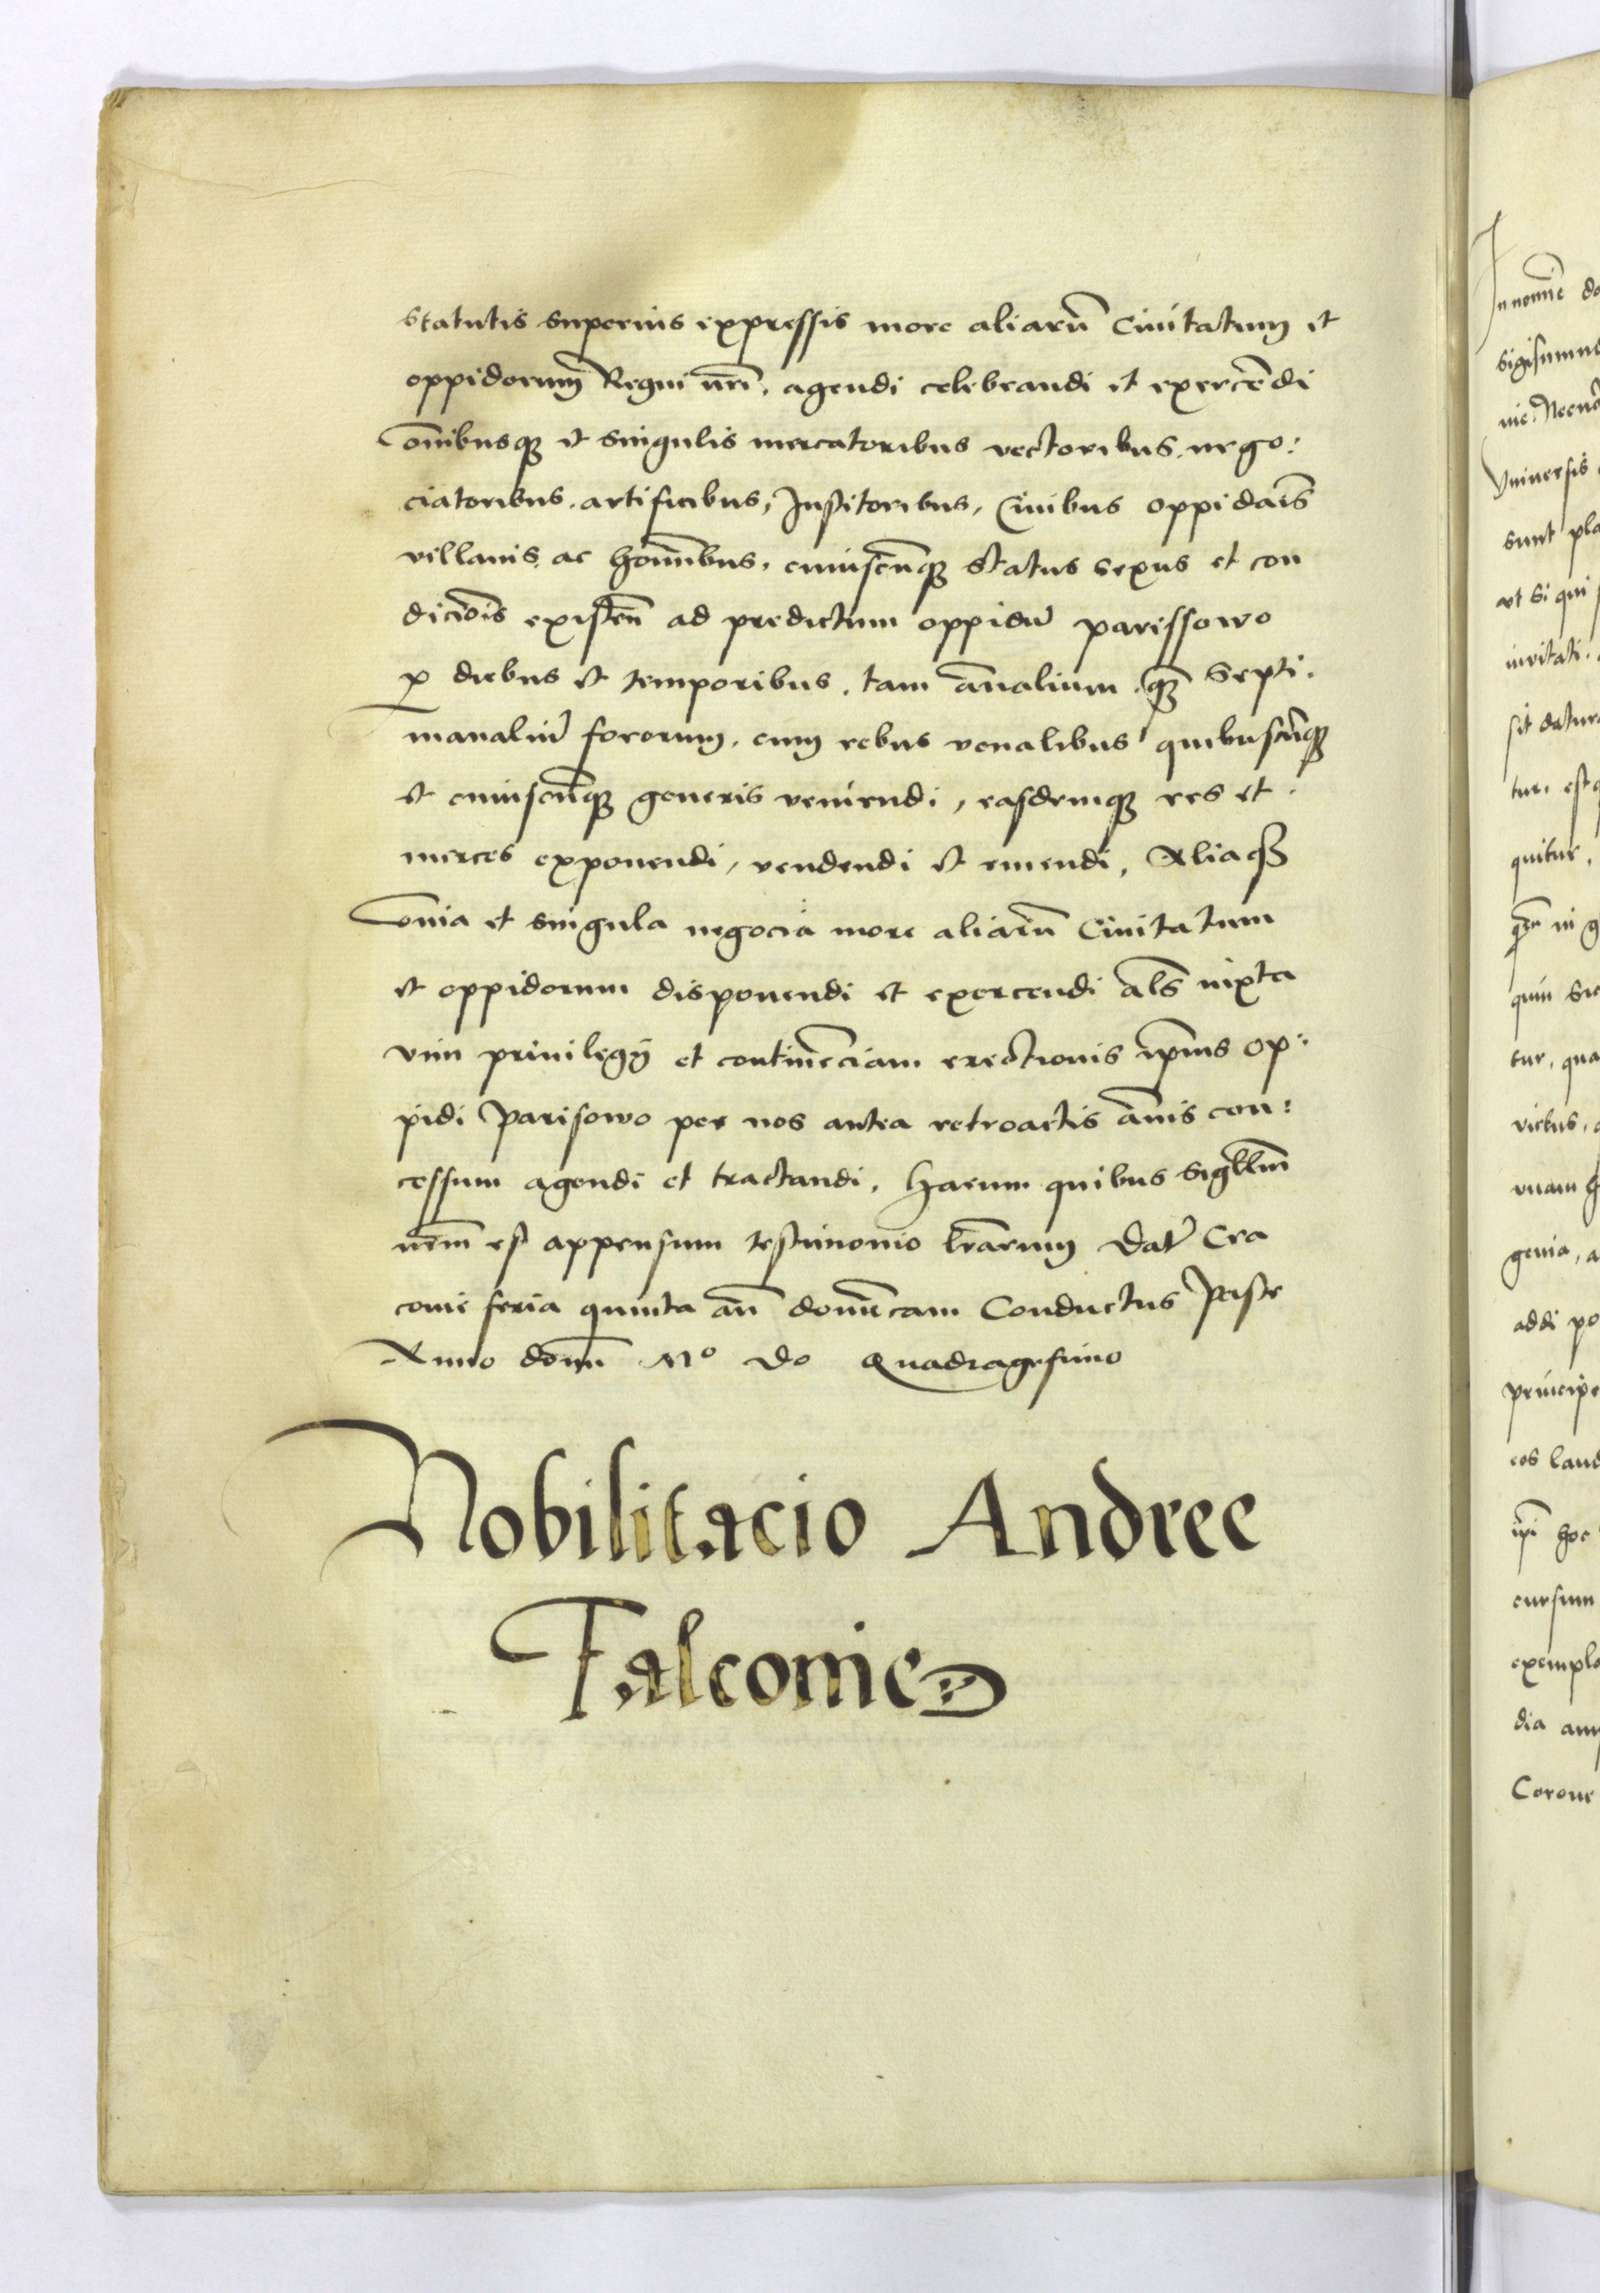 Statutis superius expressis more aliarũ Ciuitatum et
oppidorum Regni nr̃i. agendi celebrandi et exercẽdi
Om̃ibusq̃ et singulis mercatoribus vectoribus. nego:
ciatoribus. artificibus, Institoribus, Ciuibus oppidãis
villanis ac hom̃ibus. cuiuscũq̃ status sexus et con
dicõis existeñ ad predictum oppidũ parissowo
p̱ diebus et temporibus. tam ãnalium q̃ Septi.
manaliũ fororum. cum rebus venalibus quibuscũq̃
et cuiuscũq̃ generis veniendi, easdemq̃ res et.
merces exponendi, vendendi et emendi, Aliaq̃
om̃ia et singula negocia more aliarũ Ciuitatum
et oppidorum disponendi et exercendi als̃ iuxta
vim priuilegij et contineñciam erectionis ip̃ius op:
pidi Parisowo per nos antea retroactis ãnis con:
cessum agendi et tractandi. Harum quibus Sigillũ
nr̃m est appensum testimonio lr̃arum Dat̃ Cra
couie feria quinta añ domĩcam Conductus Pasce
Anno domĩ Mº Dº Quadragesimo
Nobilitacio Andree
Falconie
In nomĩe do
Sigismun
nie. Necnõ
Vniuersis
sunt pla
vt si qui
inuitati.
sit datur
tur. est q
quitur,
in g
quin sic
tur, qua
victus,
vnam
genia, a
addi po
principe
eos laud
ip̃i hoc
cursum
exemplo
dia
Corone